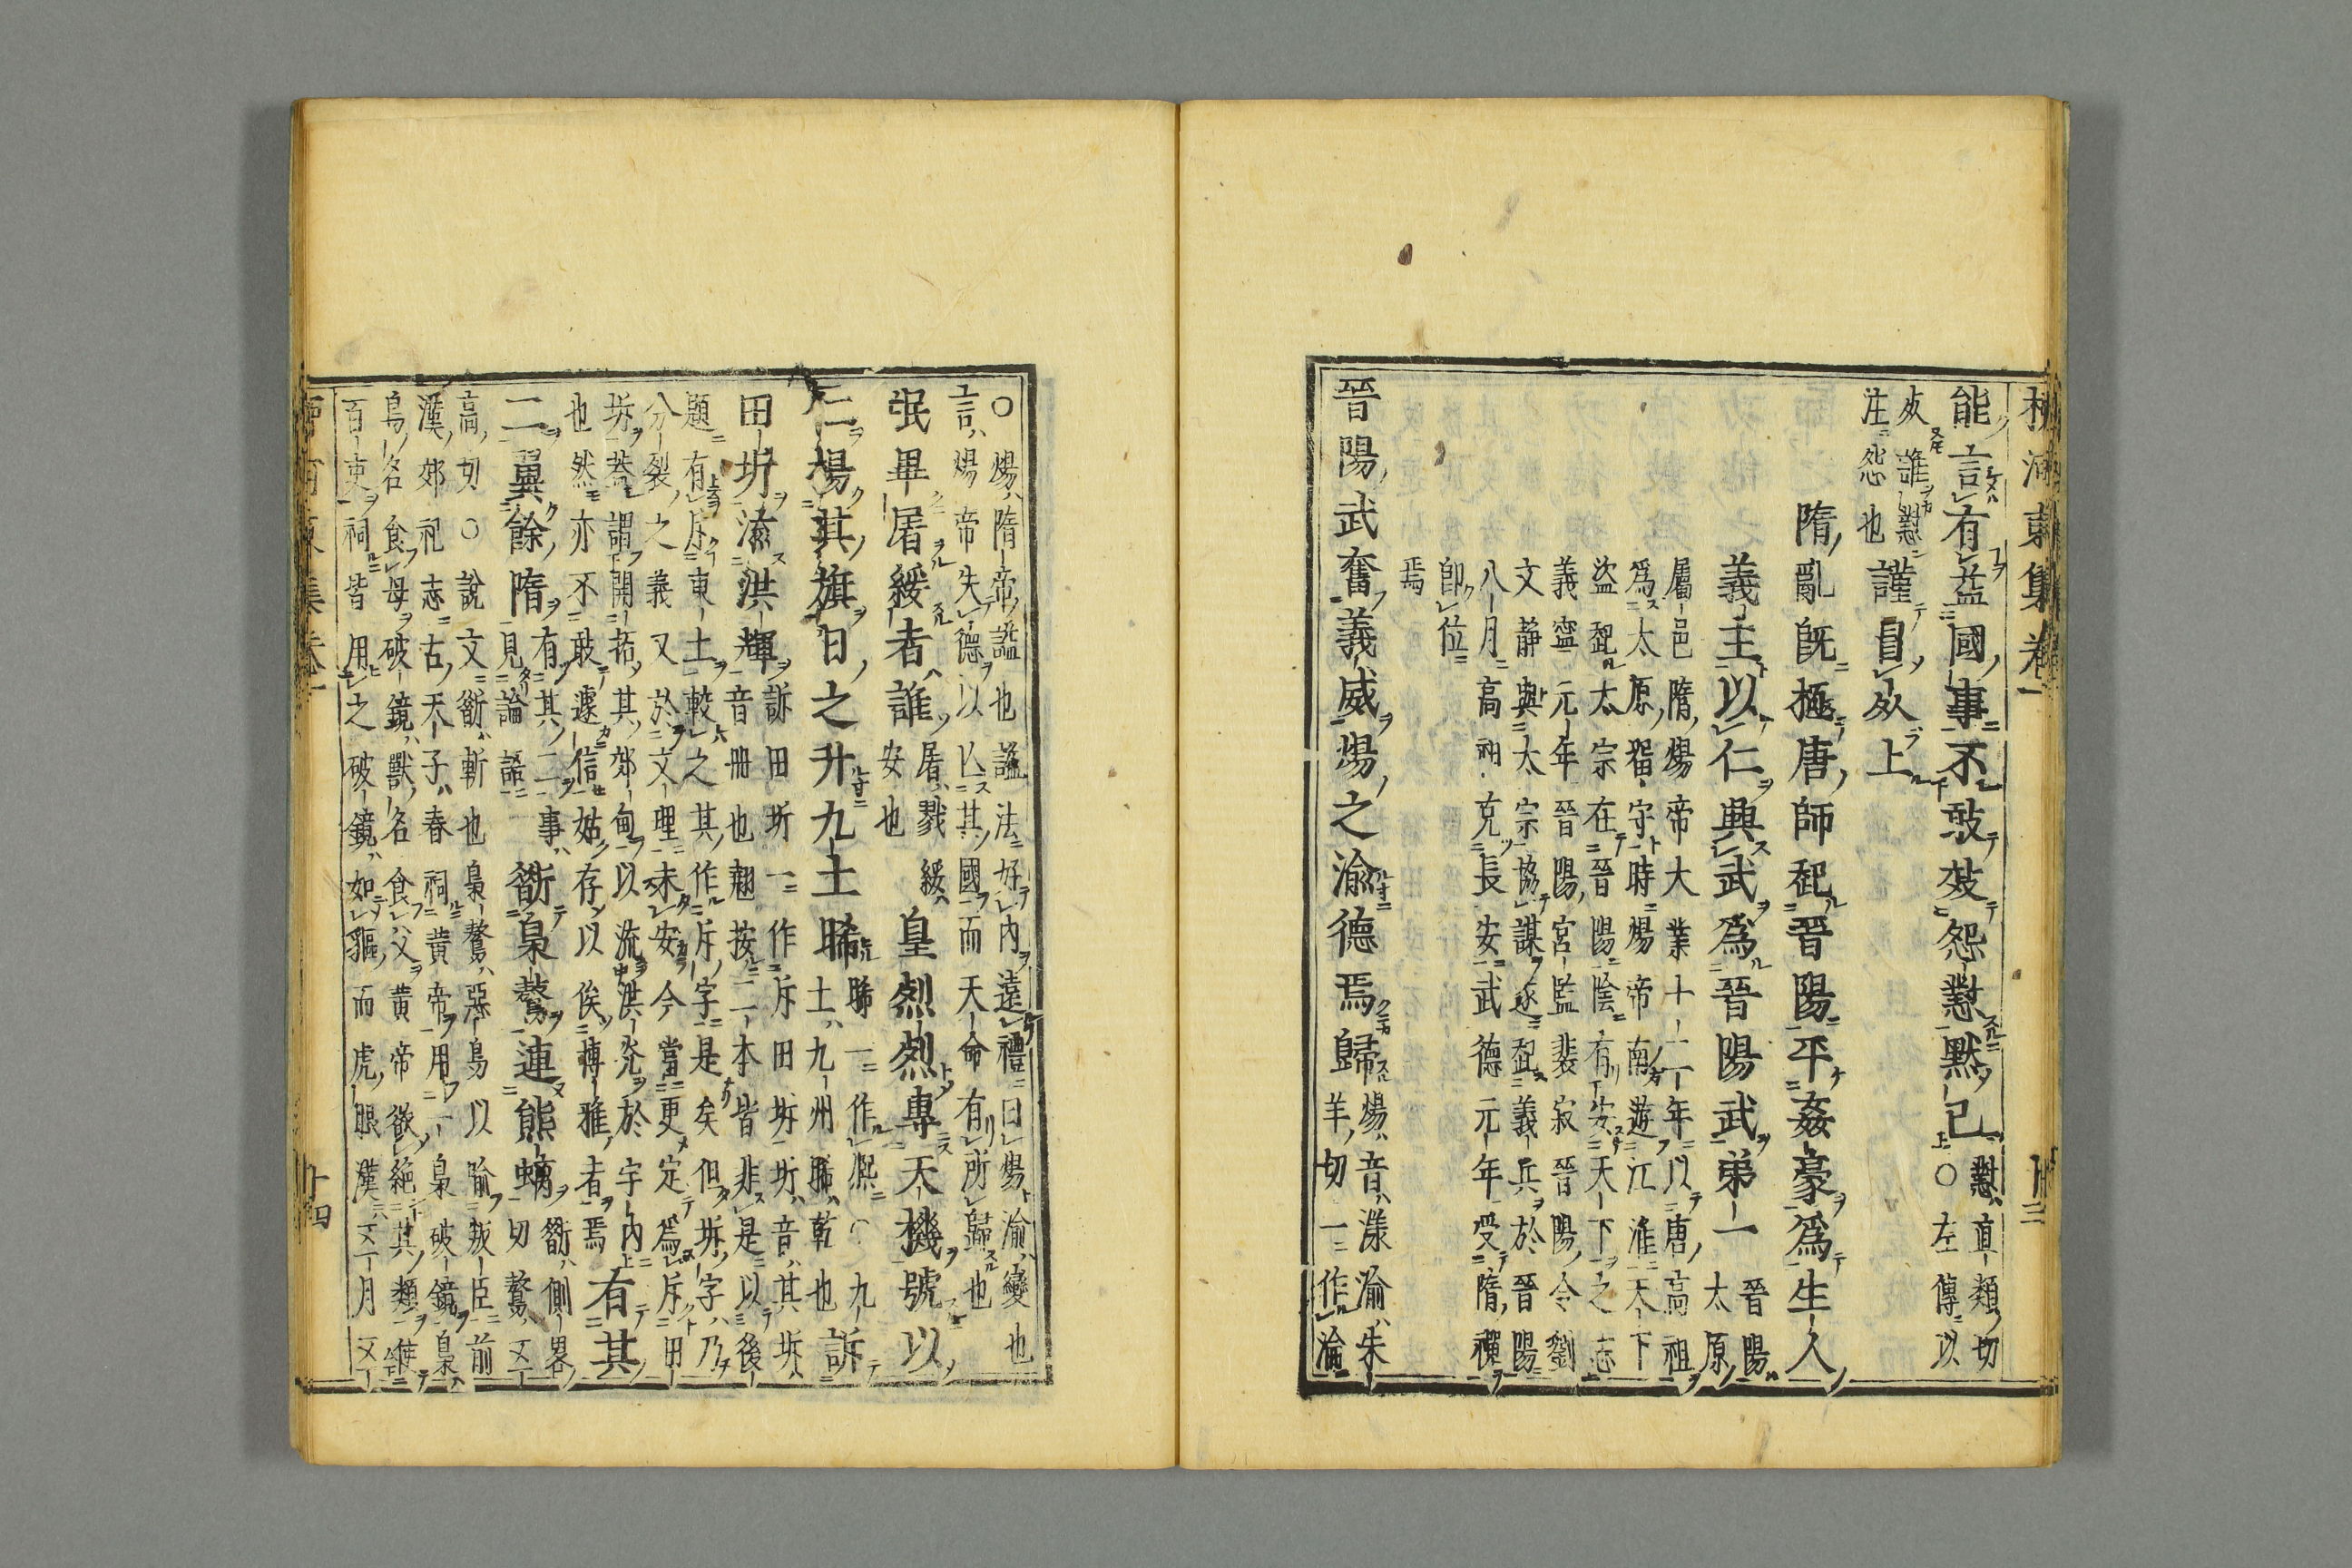 柳河東集卷一
十三
能言有益國事不敢效怨懟默已懟直類切○左傳以
死誰懟
注怨也謹冒死上
隋亂既極唐師起晉陽平姦豪爲生人
義主以仁興武爲晉陽武弟一晉陽
太原
屬邑隋煬帝大業十二年以唐高祖
爲太原留守時煬帝南遊江淮天下
盜起太宗在晉陽陰有安天下之志
義寧元年晉陽宮監裴寂晉陽令劉
文静與太宗協謀遂起義兵於晉陽
八月高祖克長安武德元年受隋禪
即位
焉
晉陽武奮義威煬之渝德焉歸煬音漾渝朱
羊切一作淪
○煬隋帝謚也謚法好內遠禮曰煬渝變也
言煬帝失德以亾其國而天命有所歸也
氓畢屠綏者誰屠戮
安也綏皇烈烈專天機號以
仁揚其旗日之升九土晞晞一作熙○九
土九州晞乾也訴
田圻流洪輝訴田圻一作斥田坼圻音其坼
音冊也翹按二本皆非是以後
題有斥東土較之其作斥字是矣但坼字乃
分裂之義又於文理未安今當更定爲斥田
坼蓋謂開拓其郊甸以流洪光於宇內
也然亦不敢遽信姑存以俟博雅者焉有其
二翼餘隋有其二事
見論語斮梟驁連熊螭斮側畧
切驁又
高切○說文斮斬也梟驁惡鳥以喻叛臣前
漢郊祀志古天子春祠黄帝用一梟破鏡梟
鳥名食母破鏡獸名食父黄帝欲絶其類使
百吏祠皆用之破鏡如貙而虎眼漢又月又
集卷一
十四